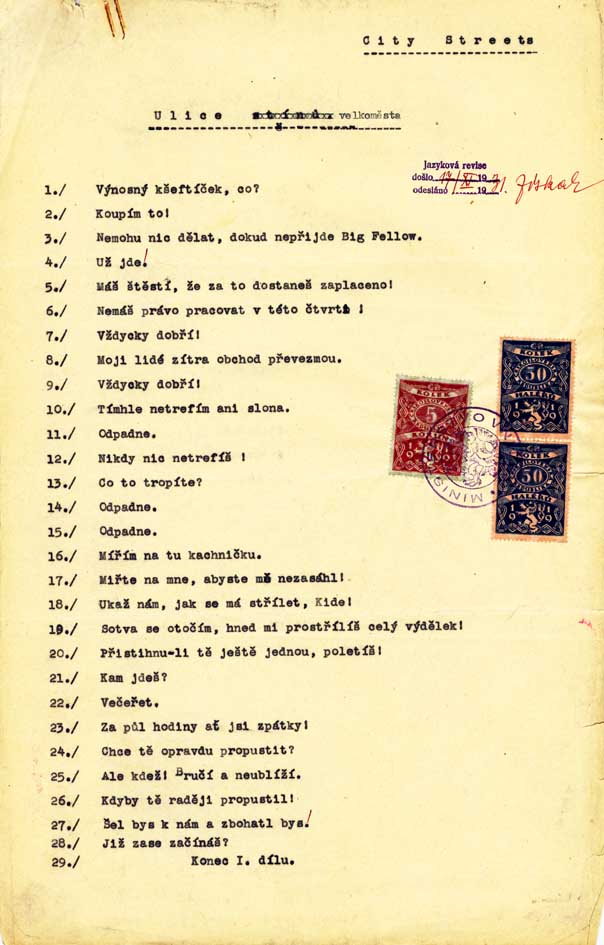 City Streets
Ulice velkoměsta
jazyková revise
došlo 17/XI 1931
odesláno 19
1./ Výnosný kšeftíček, co?
2./ Koupím to!
3./ Nemohu nic dělat, dokud nepřijde Big Fellow.
4./ Už jde!
5./ Máš štěstí, že za to dostaneš zaplaceno!
6./ Nemáš právo pracovat v této čtvrti !
7./ Vždycky dobří!
8./ Moji lidé zítra obchod převezmou.
9./ Vždycky dobří!
10./ Tímhle netrefím ani slona.
11./ Odpadne.
12./ Nikdy nic netrefíš !
13./ Co to tropíte?
14./ Odpadne.
15./ Odpadne.
16./ Mířím na tu kachničku.
17./ Miřte na mne, abyste mě nezasáhl!
18./ Ukaž nám, jak se má střílet, Kide!
19./ Sotva se otočím, hned mi prostřílíš celý výdělek!
20./ Přistihnu-li tě ještě jednou, poletíš!
21./ Kam jdeš?
22./ Večeřet.
23./ Za půl hodiny ať jsi zpátky!
24./ Chce tě opravdu propustit?
25./ Ale kdež! Bručí a neublíží.
26./ Kdyby tě raději propustil!
27./ Šel bys k nám a zbohatl bys!
28./ Již zase začínáš?
29./ Konec I. dílu.
KOLEK
50
HALÉŘŮ
KOLEK
5
KOLEK
50
HALÉŘŮ